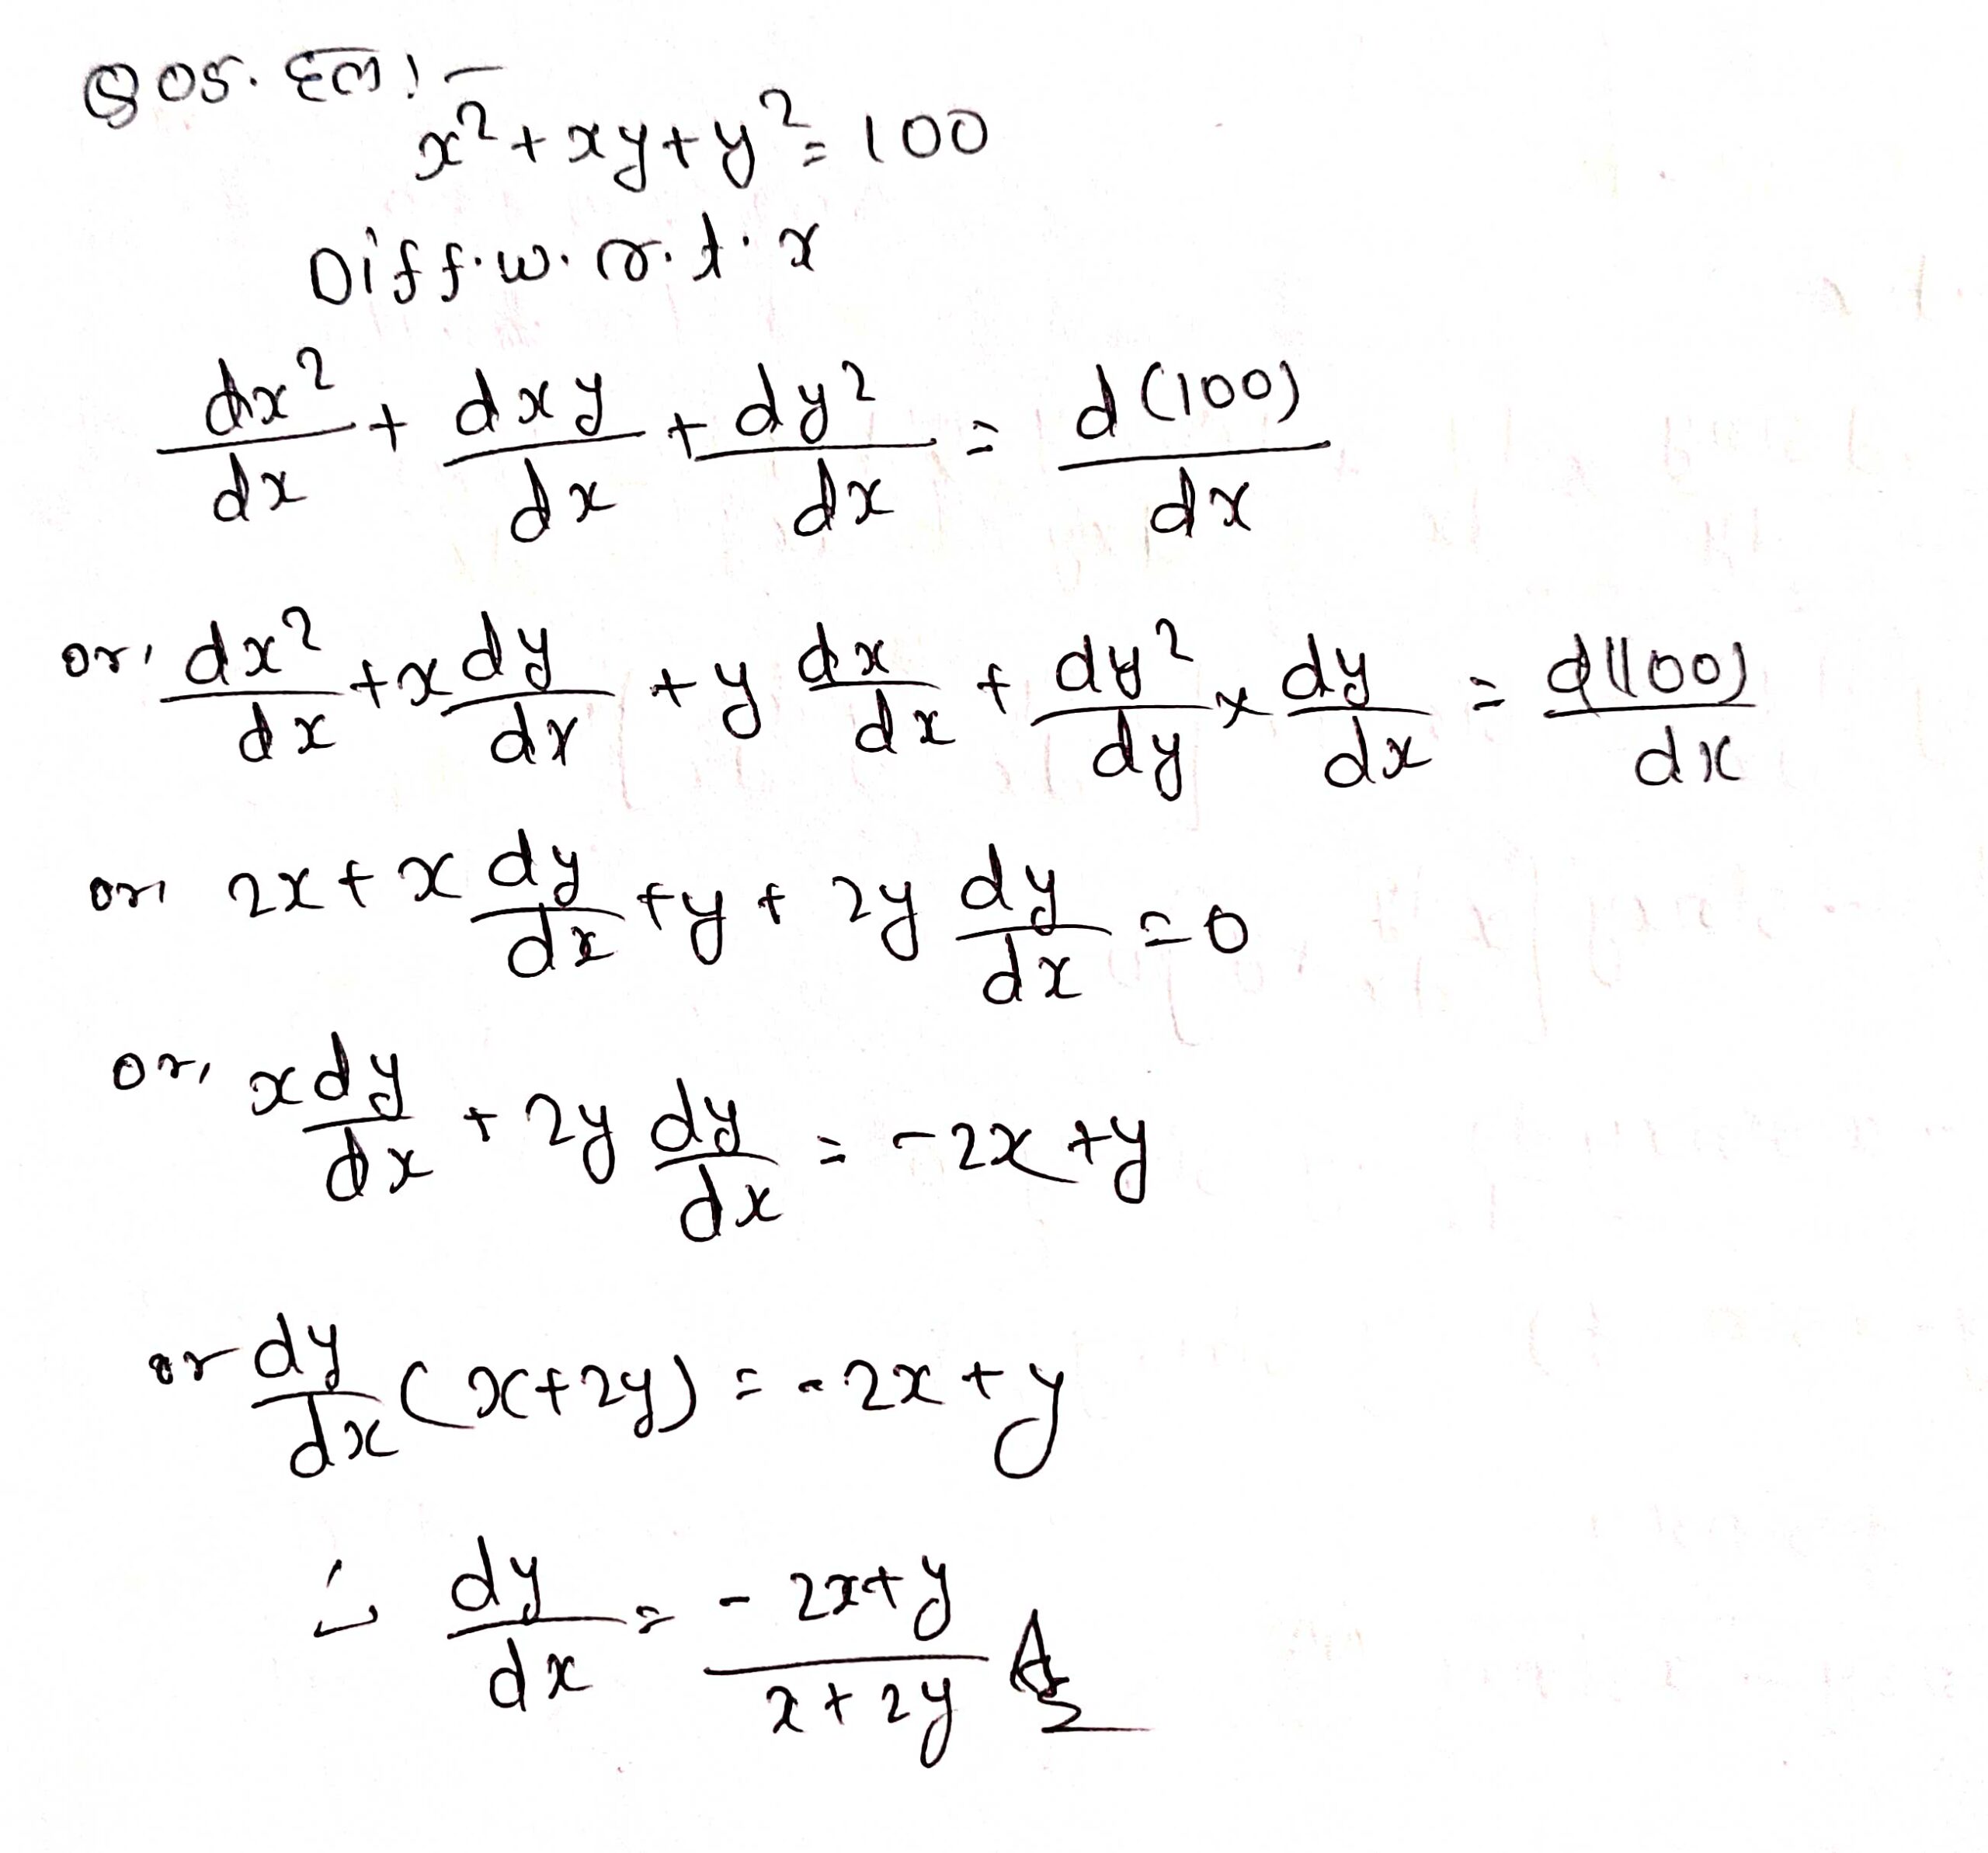 Q05. हल :-
x² + xy + y² = 100
Diff. w. r. t. x
dx²/dx + dxy/dx + dy²/dx = d(100)/dx
or, dx²/dx + x dy/dx + y dx/dx + dy²/dy × dy/dx = d(100)/dx
or, 2x + x dy/dx + y + 2y dy/dx = 0
or, x dy/dx + 2y dy/dx = -2x + y
or dy/dx (x + 2y) = -2x + y
∴ dy/dx = - 2x + y / x + 2y As